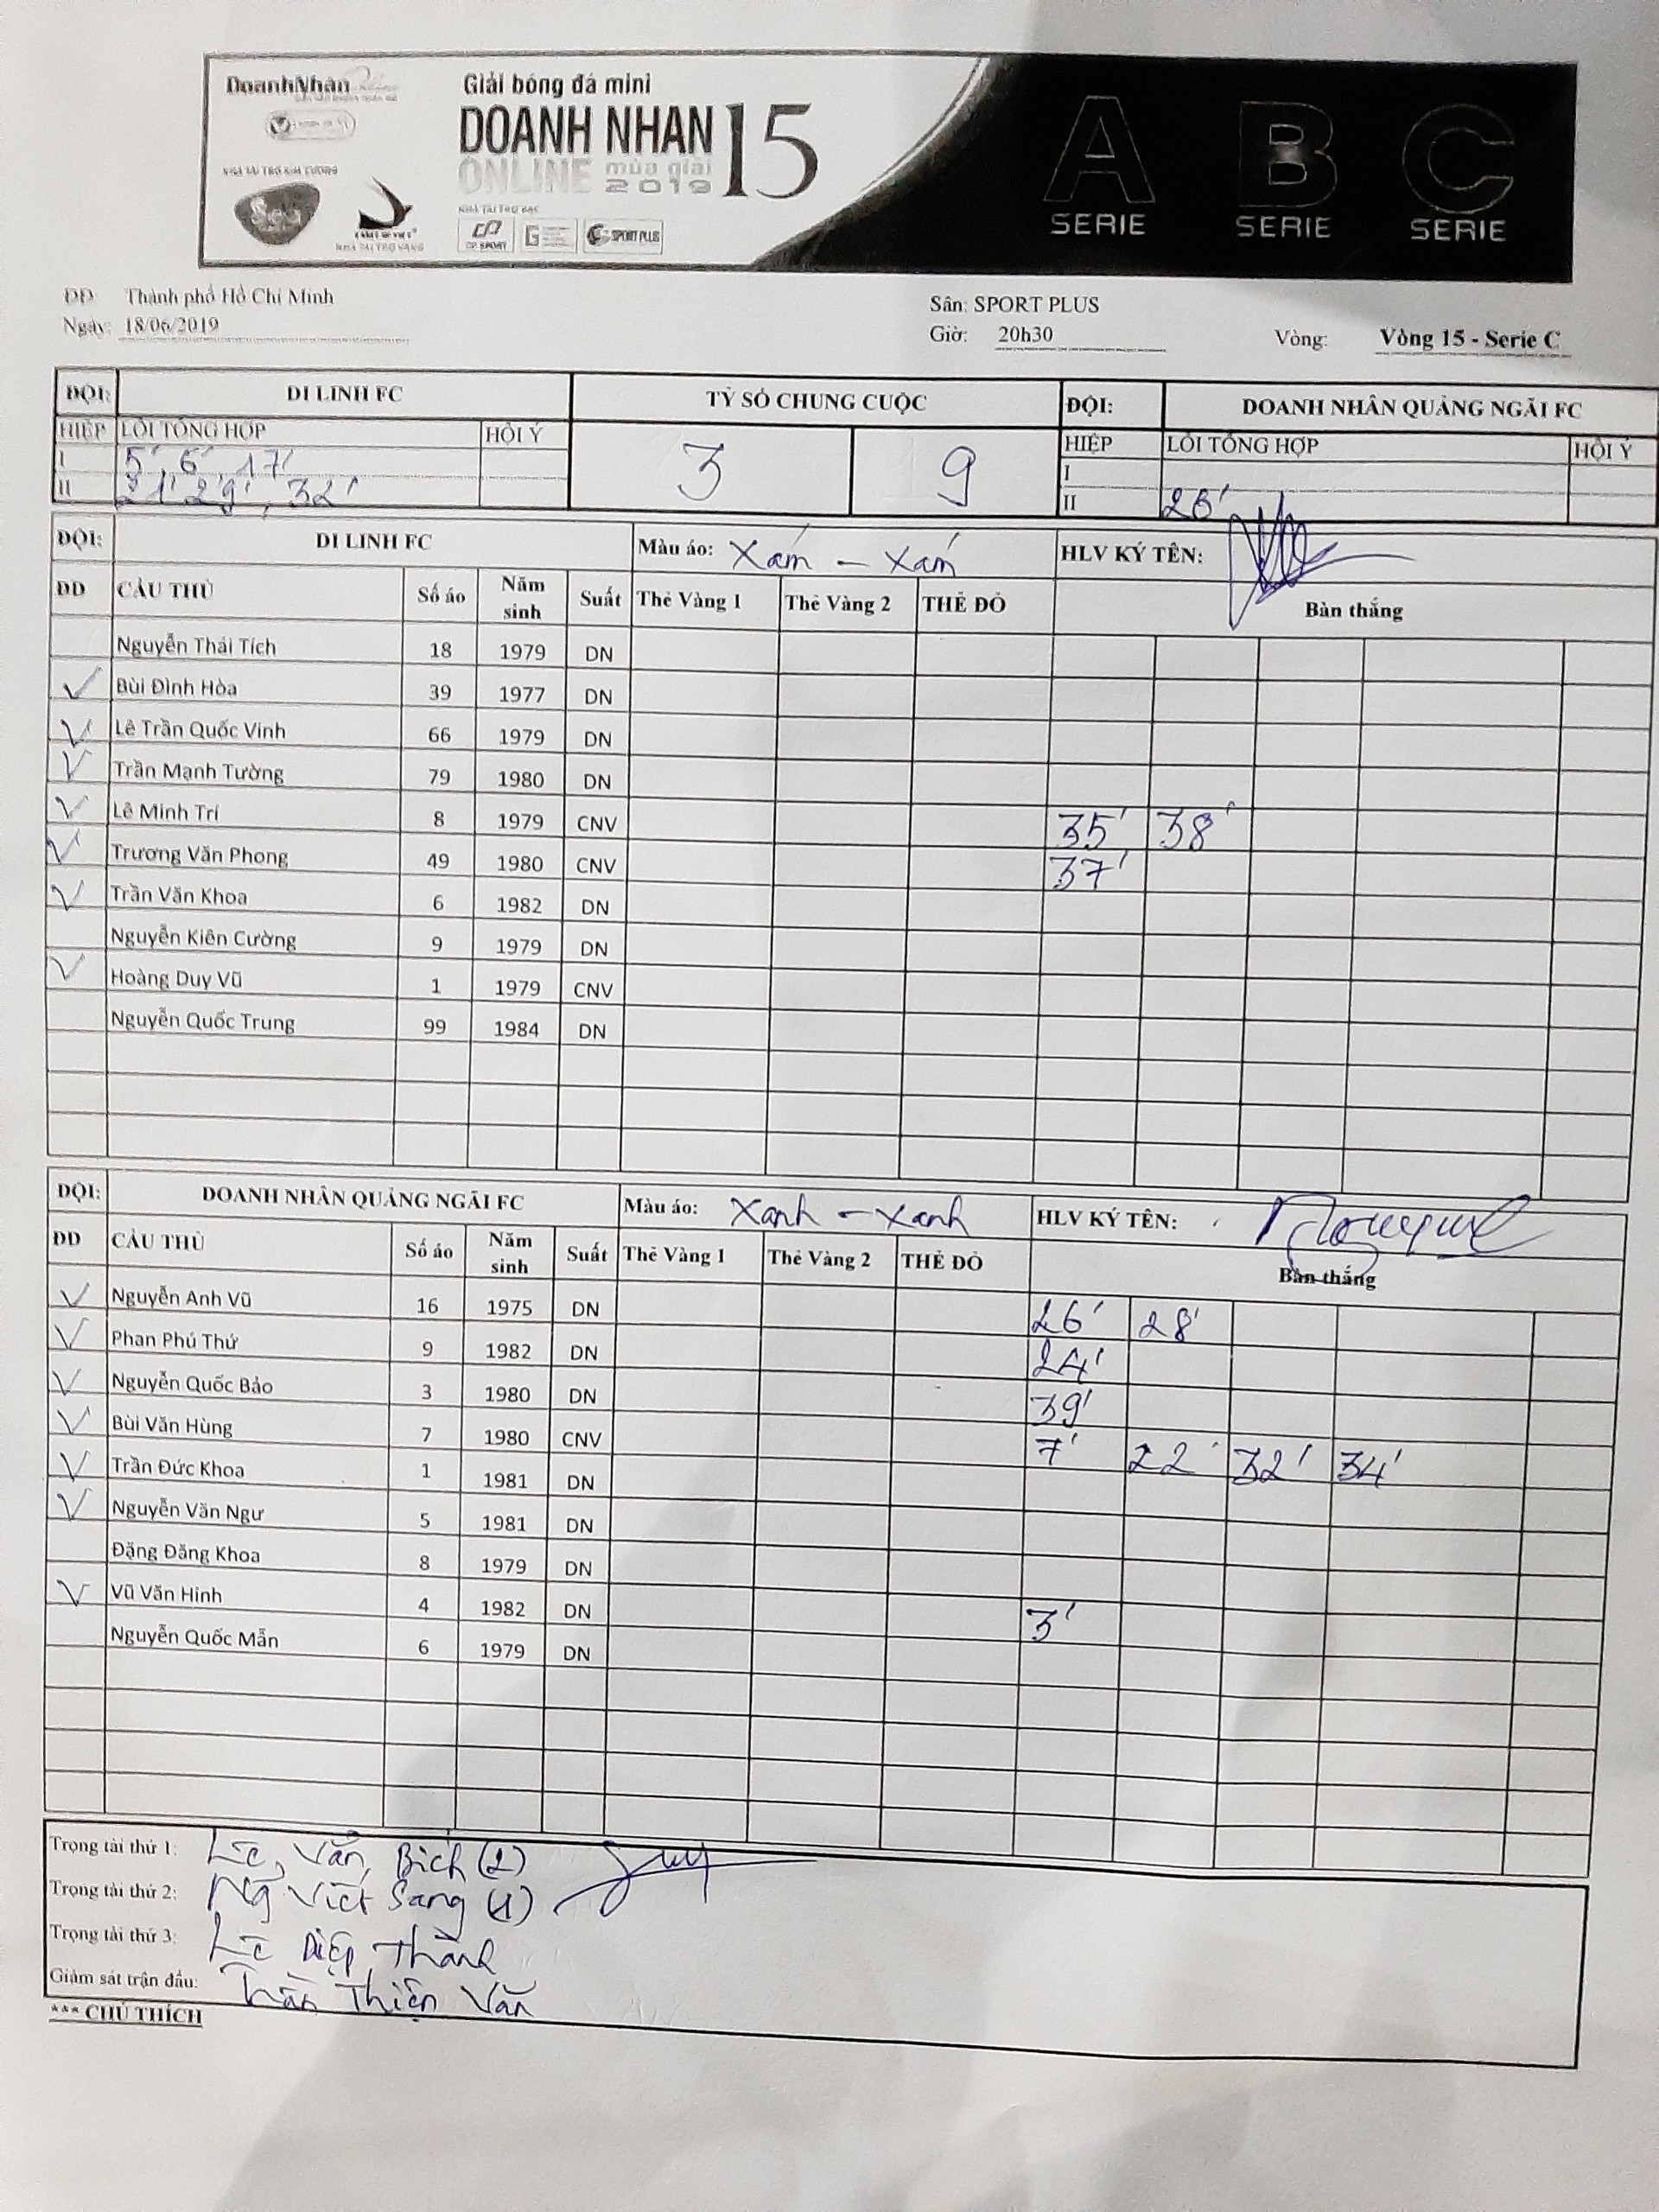 DoanhNhân
Giải bóng đá mini
DOANH NHAN 15
ONLINE mùa giải 2019
NHÀ TÀI TRỢ KIM CƯƠNG
NHÀ TÀI TRỢ VÀNG
NHÀ TÀI TRỢ BẠC
CP SPORT
SPORT PLUS
A SERIE B SERIE C SERIE
ĐĐ Thành phố Hồ Chí Minh Sân: SPORT PLUS
Ngày: 18/06/2019 Giờ: 20h30 Vòng: Vòng 15 - Serie C
ĐỘI: DI LINH FC TỶ SỐ CHUNG CUỘC ĐỘI: DOANH NHÂN QUẢNG NGÃI FC
HIỆP LỖI TỔNG HỢP HỘI Ý 3 9 HIỆP LỖI TỔNG HỢP HỘI Ý
I 5' 6' 17' I
II 21' 29', 32' II 26'
ĐỘI: DI LINH FC Màu áo: Xám - Xám HLV KÝ TÊN:
ĐD CẦU THỦ Số áo Năm sinh Suất Thẻ Vàng 1 Thẻ Vàng 2 THẺ ĐỎ Bàn thắng
Nguyễn Thái Tích 18 1979 DN
✓ Bùi Đình Hòa 39 1977 DN
✓ Lê Trần Quốc Vinh 66 1979 DN
✓ Trần Mạnh Tường 79 1980 DN
✓ Lê Minh Trí 8 1979 CNV 35' 38'
✓ Trương Văn Phong 49 1980 CNV 37'
✓ Trần Văn Khoa 6 1982 DN
Nguyễn Kiên Cường 9 1979 DN
✓ Hoàng Duy Vũ 1 1979 CNV
Nguyễn Quốc Trung 99 1984 DN
ĐỘI: DOANH NHÂN QUẢNG NGÃI FC Màu áo: Xanh - Xanh HLV KÝ TÊN:
ĐD CẦU THỦ Số áo Năm sinh Suất Thẻ Vàng 1 Thẻ Vàng 2 THẺ ĐỎ Bàn thắng
✓ Nguyễn Anh Vũ 16 1975 DN 26' 28'
✓ Phan Phú Thứ 9 1982 DN 24'
✓ Nguyễn Quốc Bảo 3 1980 DN 39'
✓ Bùi Văn Hùng 7 1980 CNV 7' 22' 32' 34'
✓ Trần Đức Khoa 1 1981 DN
✓ Nguyễn Văn Ngư 5 1981 DN
Đặng Đăng Khoa 8 1979 DN
✓ Vũ Văn Hinh 4 1982 DN 3'
Nguyễn Quốc Mẫn 6 1979 DN
Trọng tài thứ 1: Lê Văn Bích (2)
Trọng tài thứ 2: Ng Viết Sang (1)
Trọng tài thứ 3: Lê Diệp Thành
Giám sát trận đấu: Trần Thiện Văn
*** CHÚ THÍCH